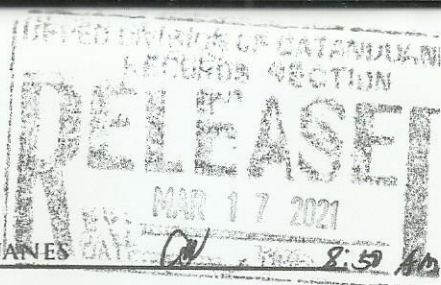 DEPED DIVISION OF CATANDUANE
RECORDS SECTION
RELEASED
MAR 17 2021
ANES DATE TIME 8:50 AM